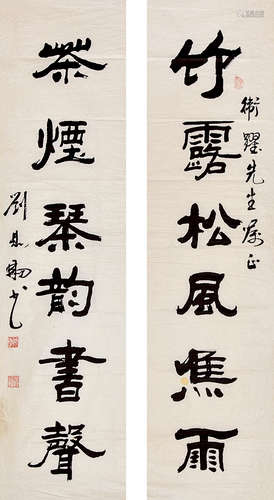 竹露松風蕉雨
衛躍先生屬正
茶煙琴韵書聲
劉